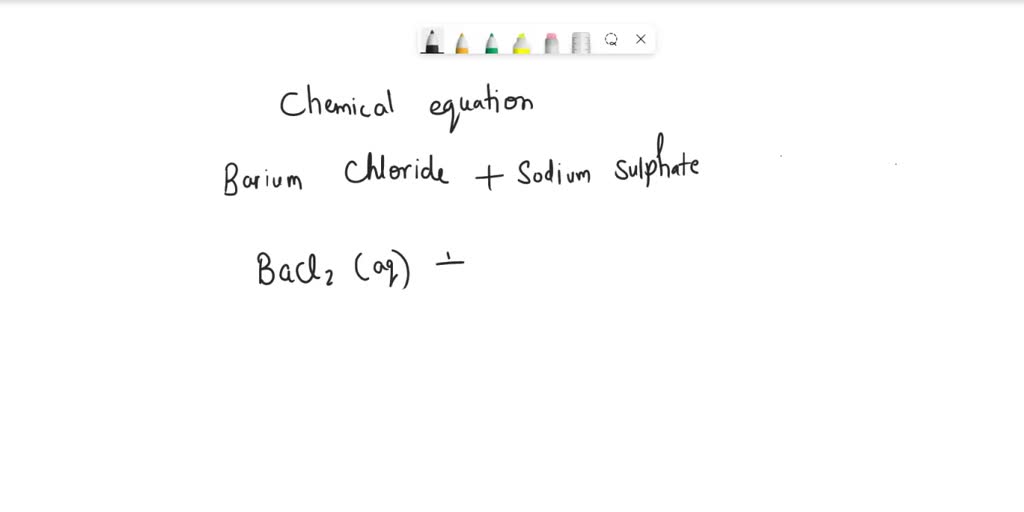 Chemical equation
Barium Chloride + Sodium Sulphate
BaCl₂ (aq) +